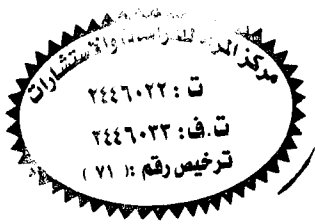 مركز المر للدراسات والاستشارات
ت : ٢٤٤٦٠٢٢
ت.ف: ٢٤٤٦٠٣٣
ترخيص رقم :( ٧١ )